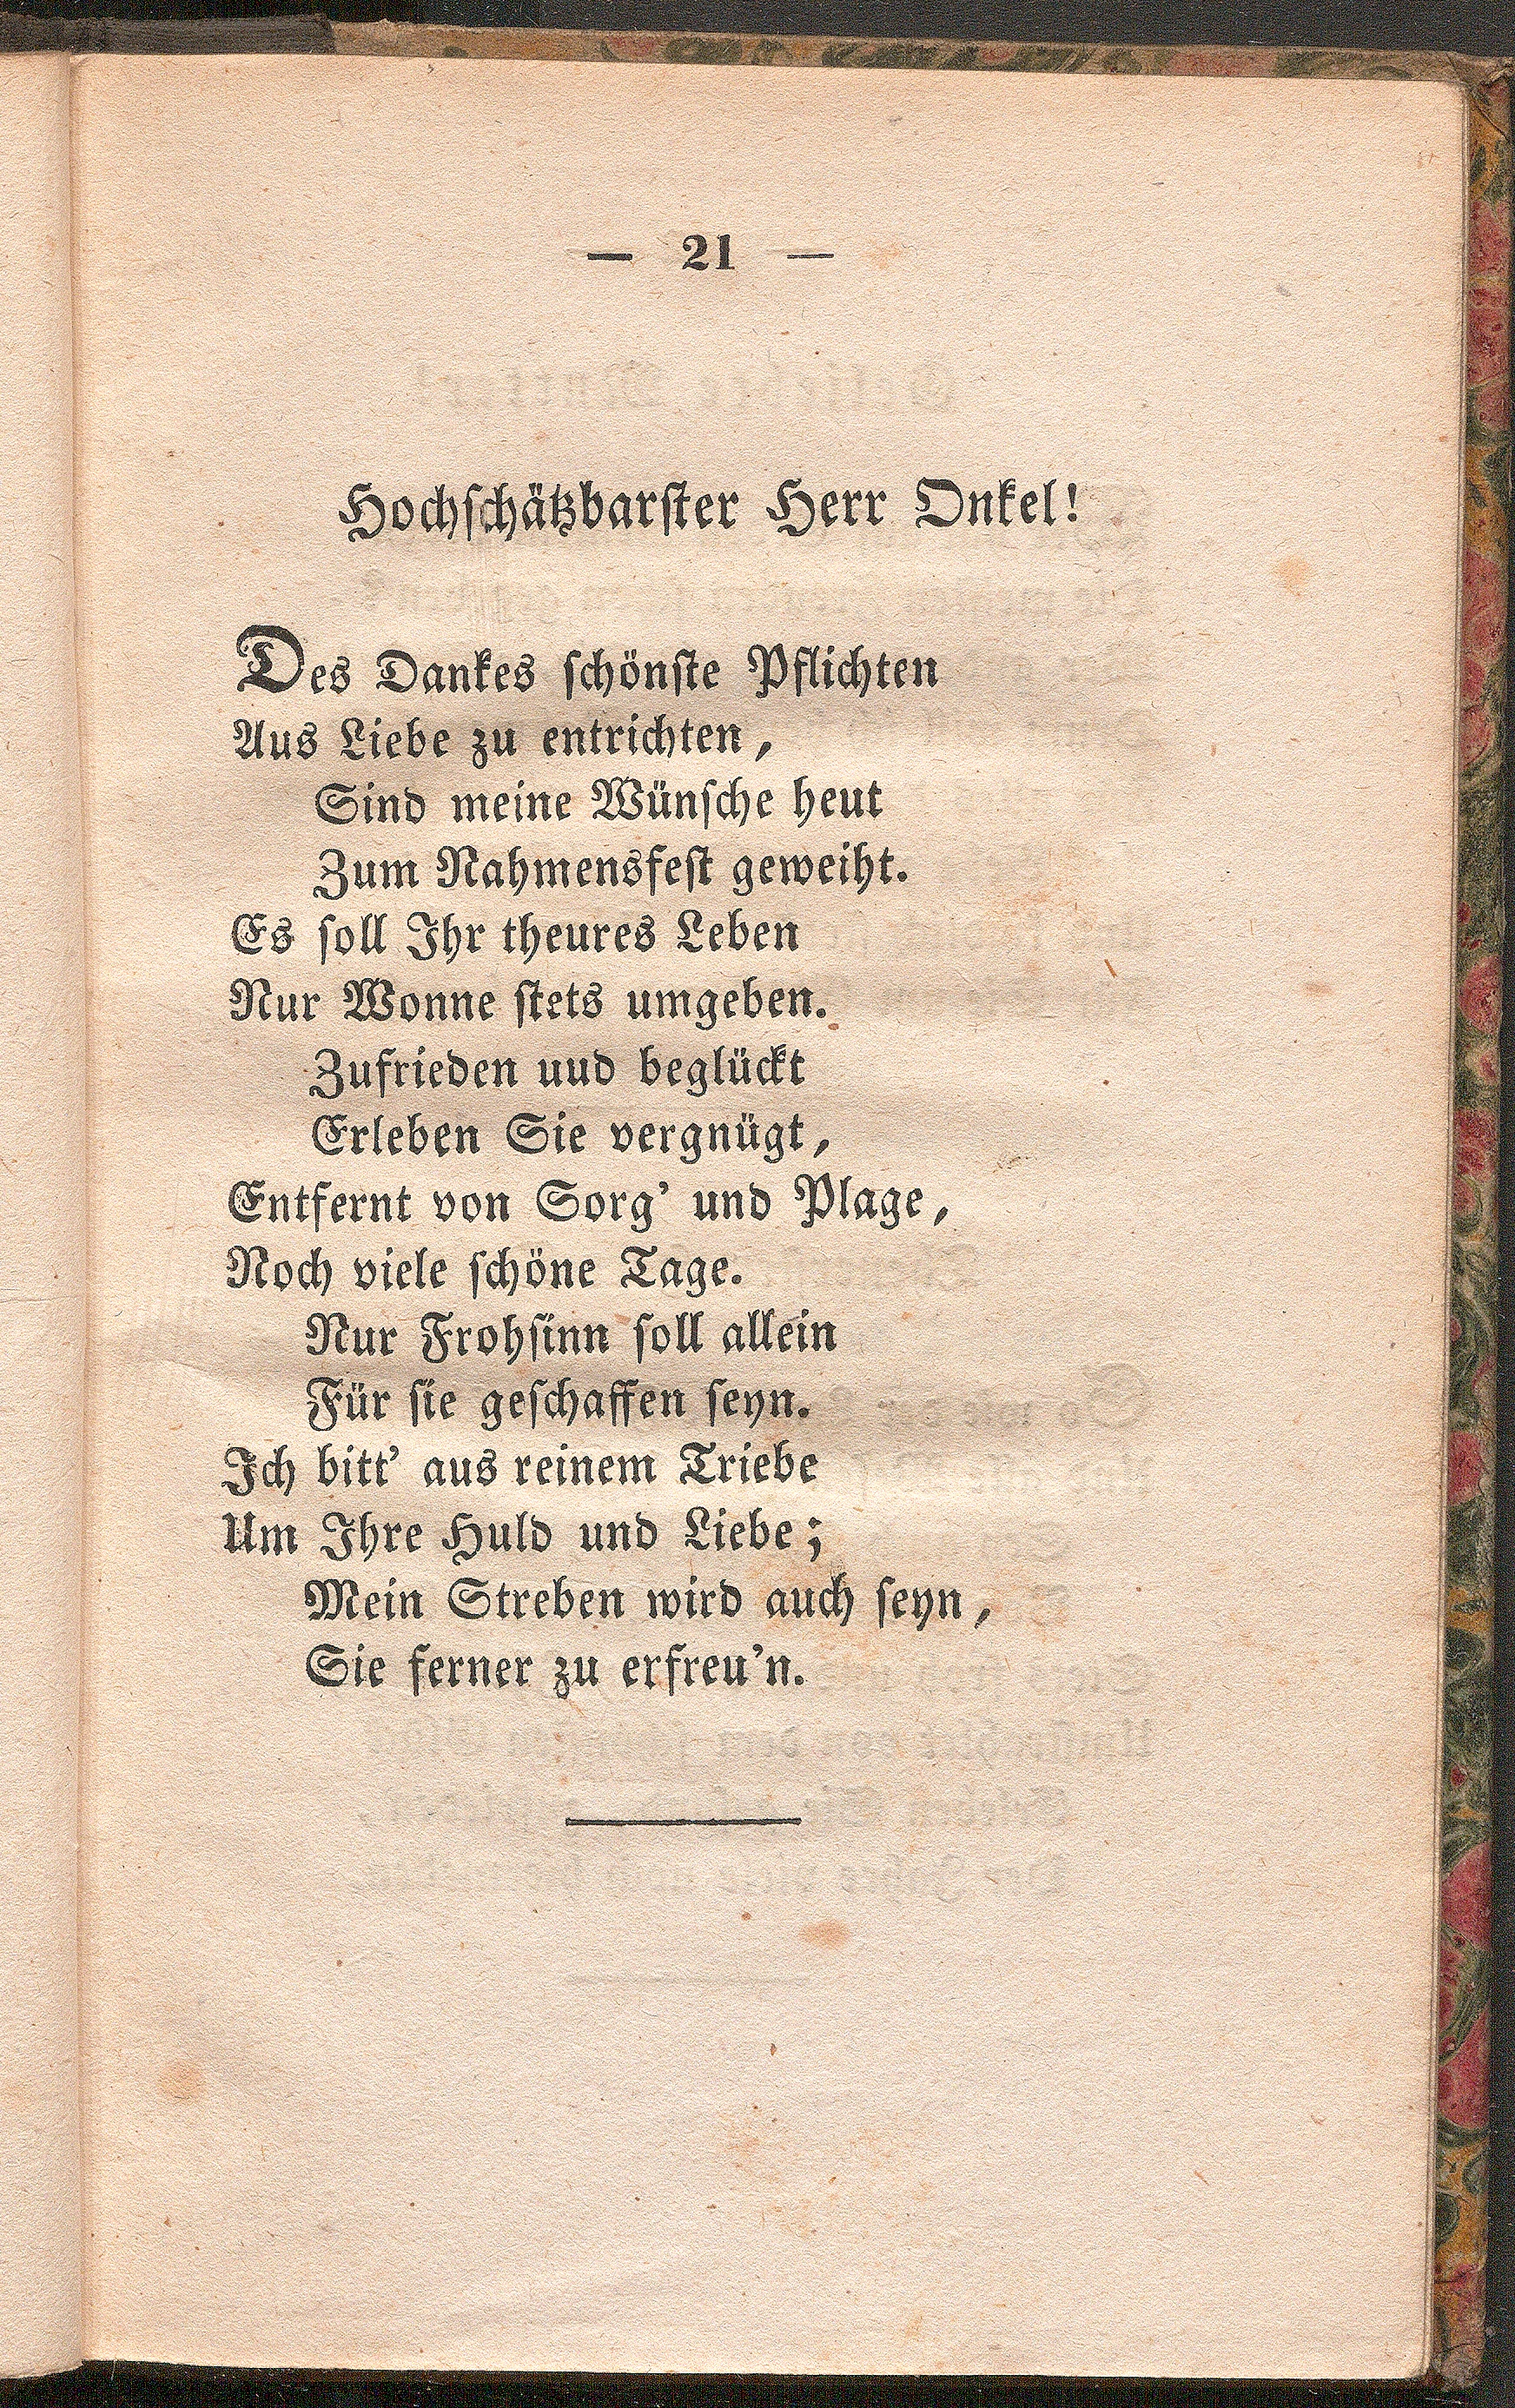 — 21 —
Hochschätzbarster Herr Onkel!
Des Dankes schönste Pflichten
Aus Liebe zu entrichten,
Sind meine Wünsche heut
Zum Nahmensfest geweiht.
Es soll Ihr theures Leben
Nur Wonne stets umgeben.
Zufrieden uud beglückt
Erleben Sie vergnügt,
Entfernt von Sorg' und Plage,
Noch viele schöne Tage.
Nur Frohsinn soll allein
Für sie geschaffen seyn.
Ich bitt' aus reinem Triebe
Um Ihre Huld und Liebe;
Mein Streben wird auch seyn,
Sie ferner zu erfreu'n.